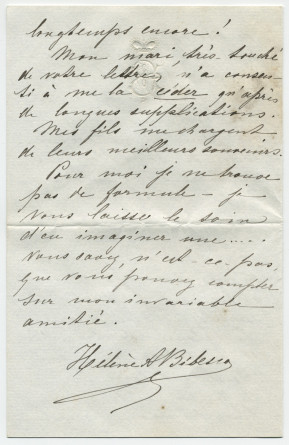 longtemps encore !
Mon mari, très touché
de votre lettre, n'a consen-
ti à me la céder qu'après
de longues supplications.
Mes fils me chargent
de leurs meilleurs souvenirs.
Pour moi je ne trouve
pas de formule — je
vous laisse le soin
d'en imaginer une ....
vous savez, n'est-ce-pas,
que vous pouvez compter
sur mon invariable
amitié.
Hélène A Bibesco